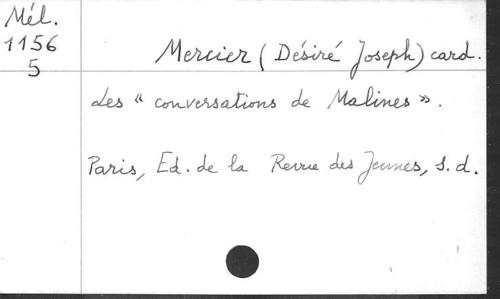 Mél.
1156
5
Mercier (Désiré Joseph) card.
Les " conversations de Malines ».
Paris, Ed. de la Revue des Jeunes, s.d.